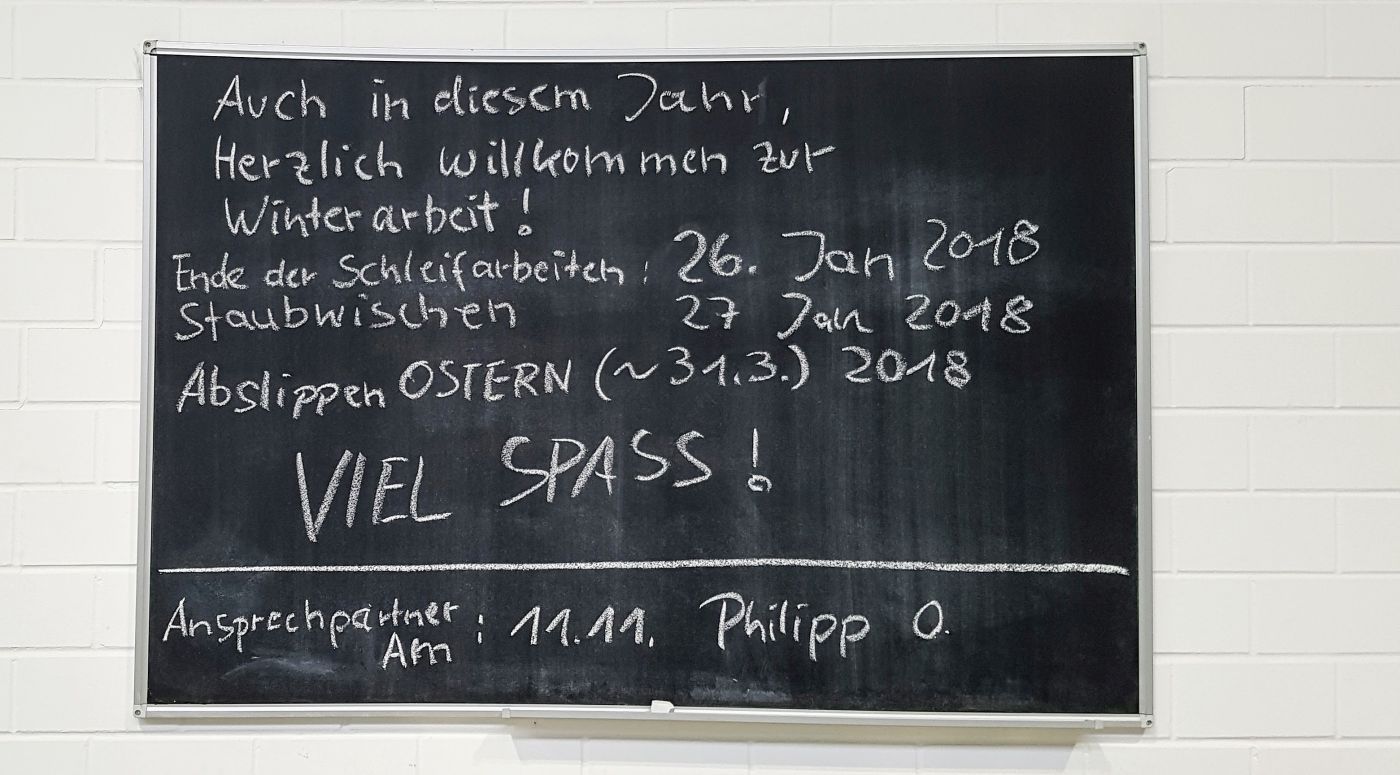 Auch in diesem Jahr,
Herzlich willkommen zur
Winterarbeit!
Ende der Schleifarbeiten: 26. Jan 2018
Staubwischen 27 Jan 2018
Abslippen OSTERN (~31.3.) 2018
VIEL SPASS!
Ansprechpartner : 11.11. Philipp O.
Am